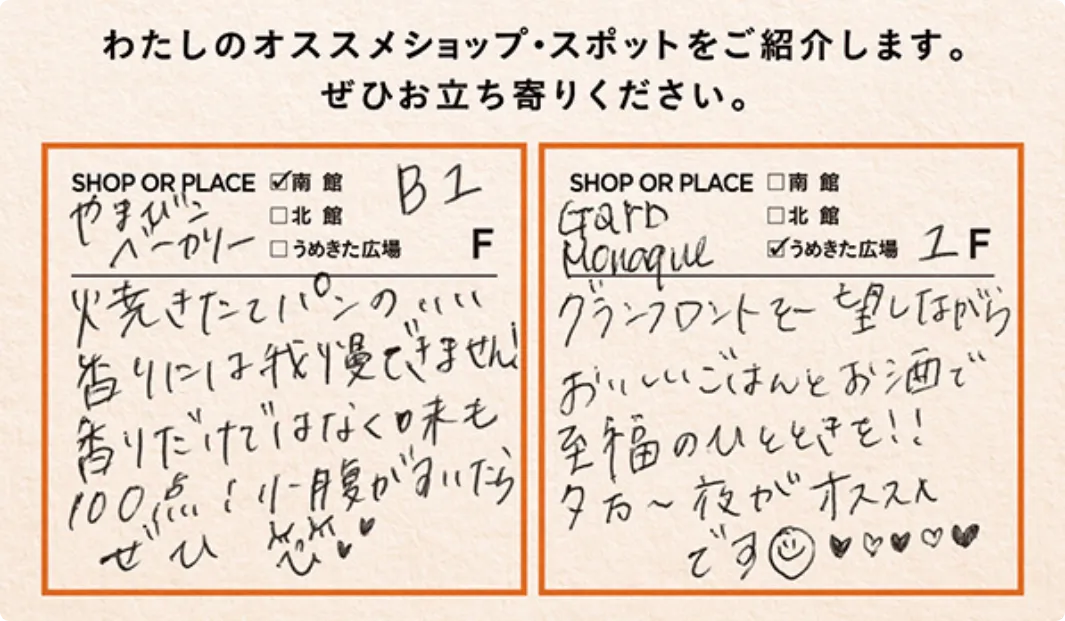 わたしのオススメショップ・スポットをご紹介します。
ぜひお立ち寄りください。
SHOP OR PLACE ☑南 館 B1
やまびこ □北 館
ベーカリー □うめきた広場 F
焼きたてパンのいい
香りには我慢できません!
香りだけではなく味も
100点!小腹がすいたら
ぜひ
SHOP OR PLACE □南 館
GARB □北 館
Monaque ☑うめきた広場 1F
グランフロントを一望しながら
おいしいごはんとお酒で
至福のひとときを!!
夕方〜夜がオススメ
です